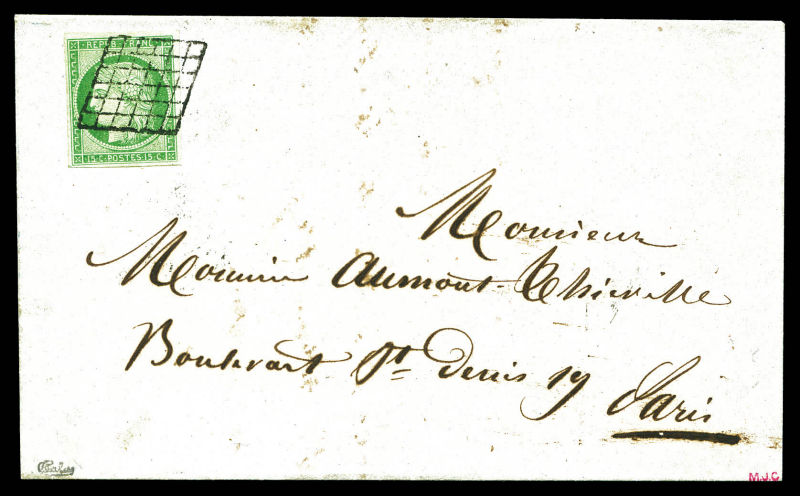 REPUB. FRANC.
15.C.POSTES.15.C.
Monsieur
Monsieur Aumont-Thieville
Boulevart St denis 19
Paris
M.J.C